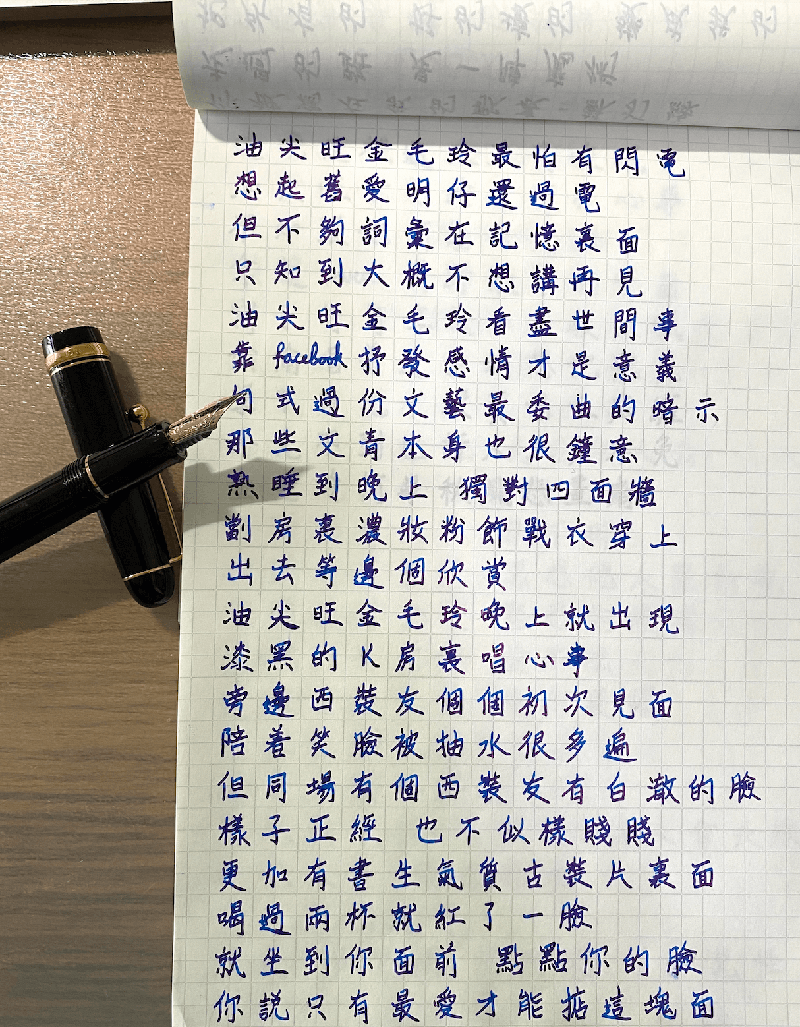 油尖旺金毛玲最怕有閃電
想起舊愛明仔還過電
但不夠詞彙在記憶裏面
只知到大概不想講再見
油尖旺金毛玲看盡世間事
靠facebook抒發感情才是意義
句式過份文藝最委曲的暗示
那些文青本身也很鐘意
熟睡到晚上 獨對四面牆
劏房裏濃妝粉飾戰衣穿上
出去等邊個欣賞
油尖旺金毛玲晚上就出現
漆黑的K房裏唱心事
旁邊西裝友個個初次見面
陪着笑臉被抽水很多遍
但同場有個西裝友有白澈的臉
樣子正經 也不似樣賤賤
更加有書生氣質古裝片裏面
喝過兩杯就紅了一臉
就坐到你面前 點點你的臉
你說只有最愛才能掂這塊面